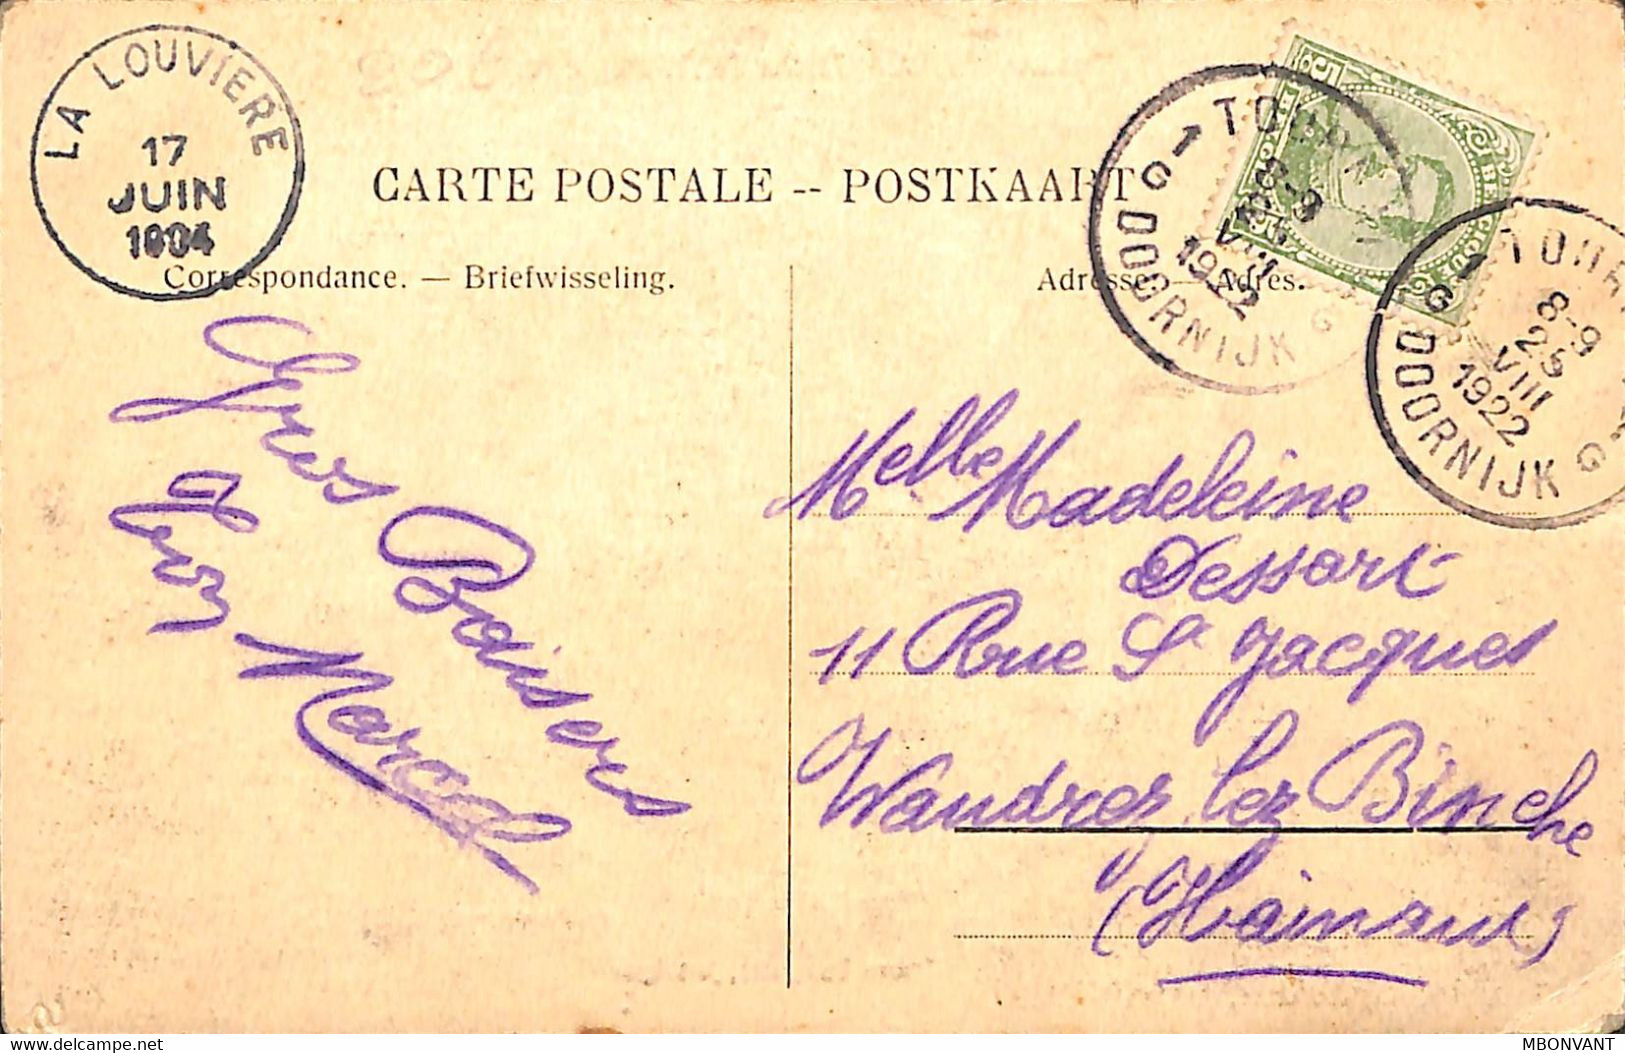 LA LOUVIERE
17
JUIN
1904
CARTE POSTALE -- POSTKAART
Correspondance. — Briefwisseling.
Adresse. — Adres.
1 TOURNAI 1
G DOORNIJK G
8-9
25
VIII
1922
TOURN
G DOORNIJK G
8-9
25
VIII
1922
BE
Gros Baisers
de ton
Marcel
Melle Madeleine
Dessart
11 Rue St Jacques
Waudrez lez Binche
(Hainaut)
MBONVANT